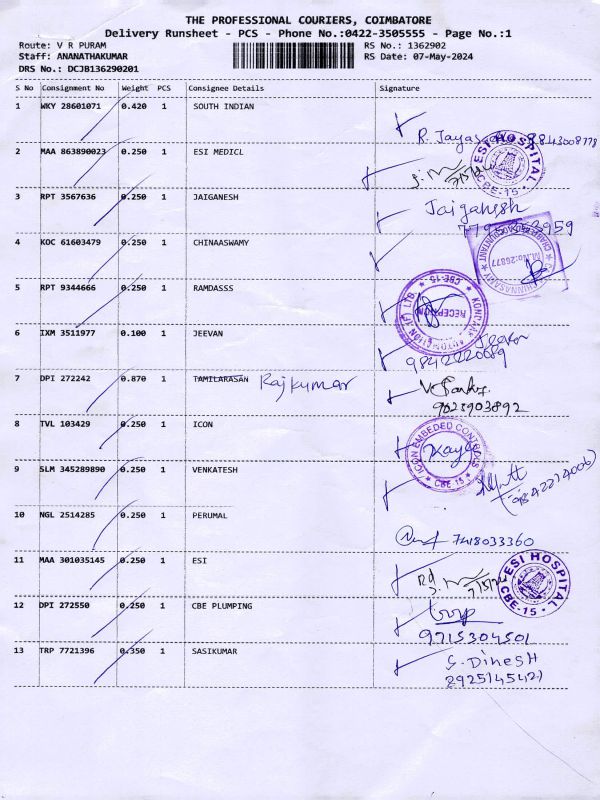 THE PROFESSIONAL COURIERS, COIMBATORE
Delivery Runsheet - PCS - Phone No.:0422-3505555 - Page No.:1
Route: V R PURAM RS No.: 1362902
Staff: ANANATHAKUMAR RS Date: 07-May-2024
DRS No.: DCJB136290201
S No Consignment No Weight PCS Consignee Details Signature
1 WKY 28601071 0.420 1 SOUTH INDIAN
9843008778
2 MAA 863890023 0.250 1 ESI MEDICL
ESI HOSPITAL
CBE-15
3 RPT 3567636 0.250 1 JAIGANESH Jaiganesh
4 KOC 61603479 0.250 1 CHINAASWAMY
CHINNASAMY
M.No:26877
5 RPT 9344666 0.250 1 RAMDASSS
RECEPTION
CBE-15
6 IXM 3511977 0.100 1 JEEVAN
9842220089
7 DPI 272242 0.870 1 TAMILARASAN Rajkumar
9023903892
8 TVL 103429 0.250 1 ICON
ICON EMBEDED CONTROLS
CBE-15
9 SLM 345289890 0.250 1 VENKATESH
10 NGL 2514285 0.250 1 PERUMAL
7418033360
11 MAA 301035145 0.250 1 ESI
ESI HOSPITAL
CBE-15
12 DPI 272550 0.250 1 CBE PLUMPING
9715304501
13 TRP 7721396 0.350 1 SASIKUMAR S. DINESH